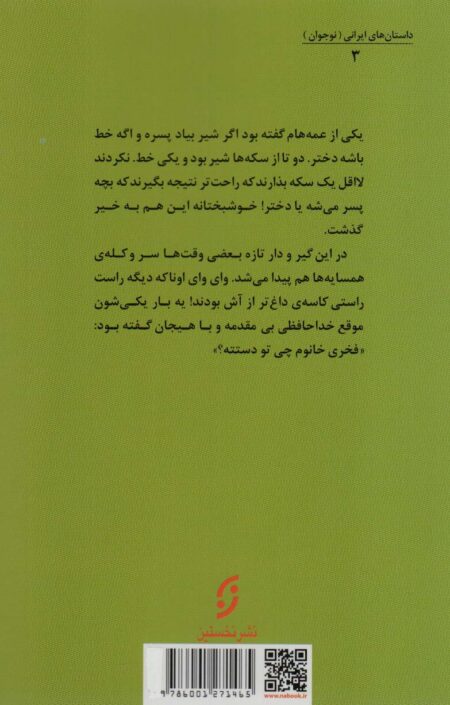 داستان‌های ایرانی ( نوجوان )
۳
یکی از عمه‌هام گفته بود اگر شیر بیاد پسره و اگه خط
باشه دختر. دو تا از سکه‌ها شیر بود و یکی خط. نکردند
لااقل یک سکه بذارند که راحت‌تر نتیجه بگیرند که بچه
پسر می‌شه یا دختر! خوشبختانه این هم به خیر
گذشت.
در این گیر و دار تازه بعضی وقت‌ها سر و کله‌ی
همسایه‌ها هم پیدا می‌شد. وای وای اوناکه دیگه راست
راستی کاسه‌ی داغ‌تر از آش بودند! یه بار یکی‌شون
موقع خداحافظی بی مقدمه و با هیجان گفته بود:
«فخری خانوم چی تو دستته؟»
نشر نخستین
9 786001 271465
www.nabook.ir